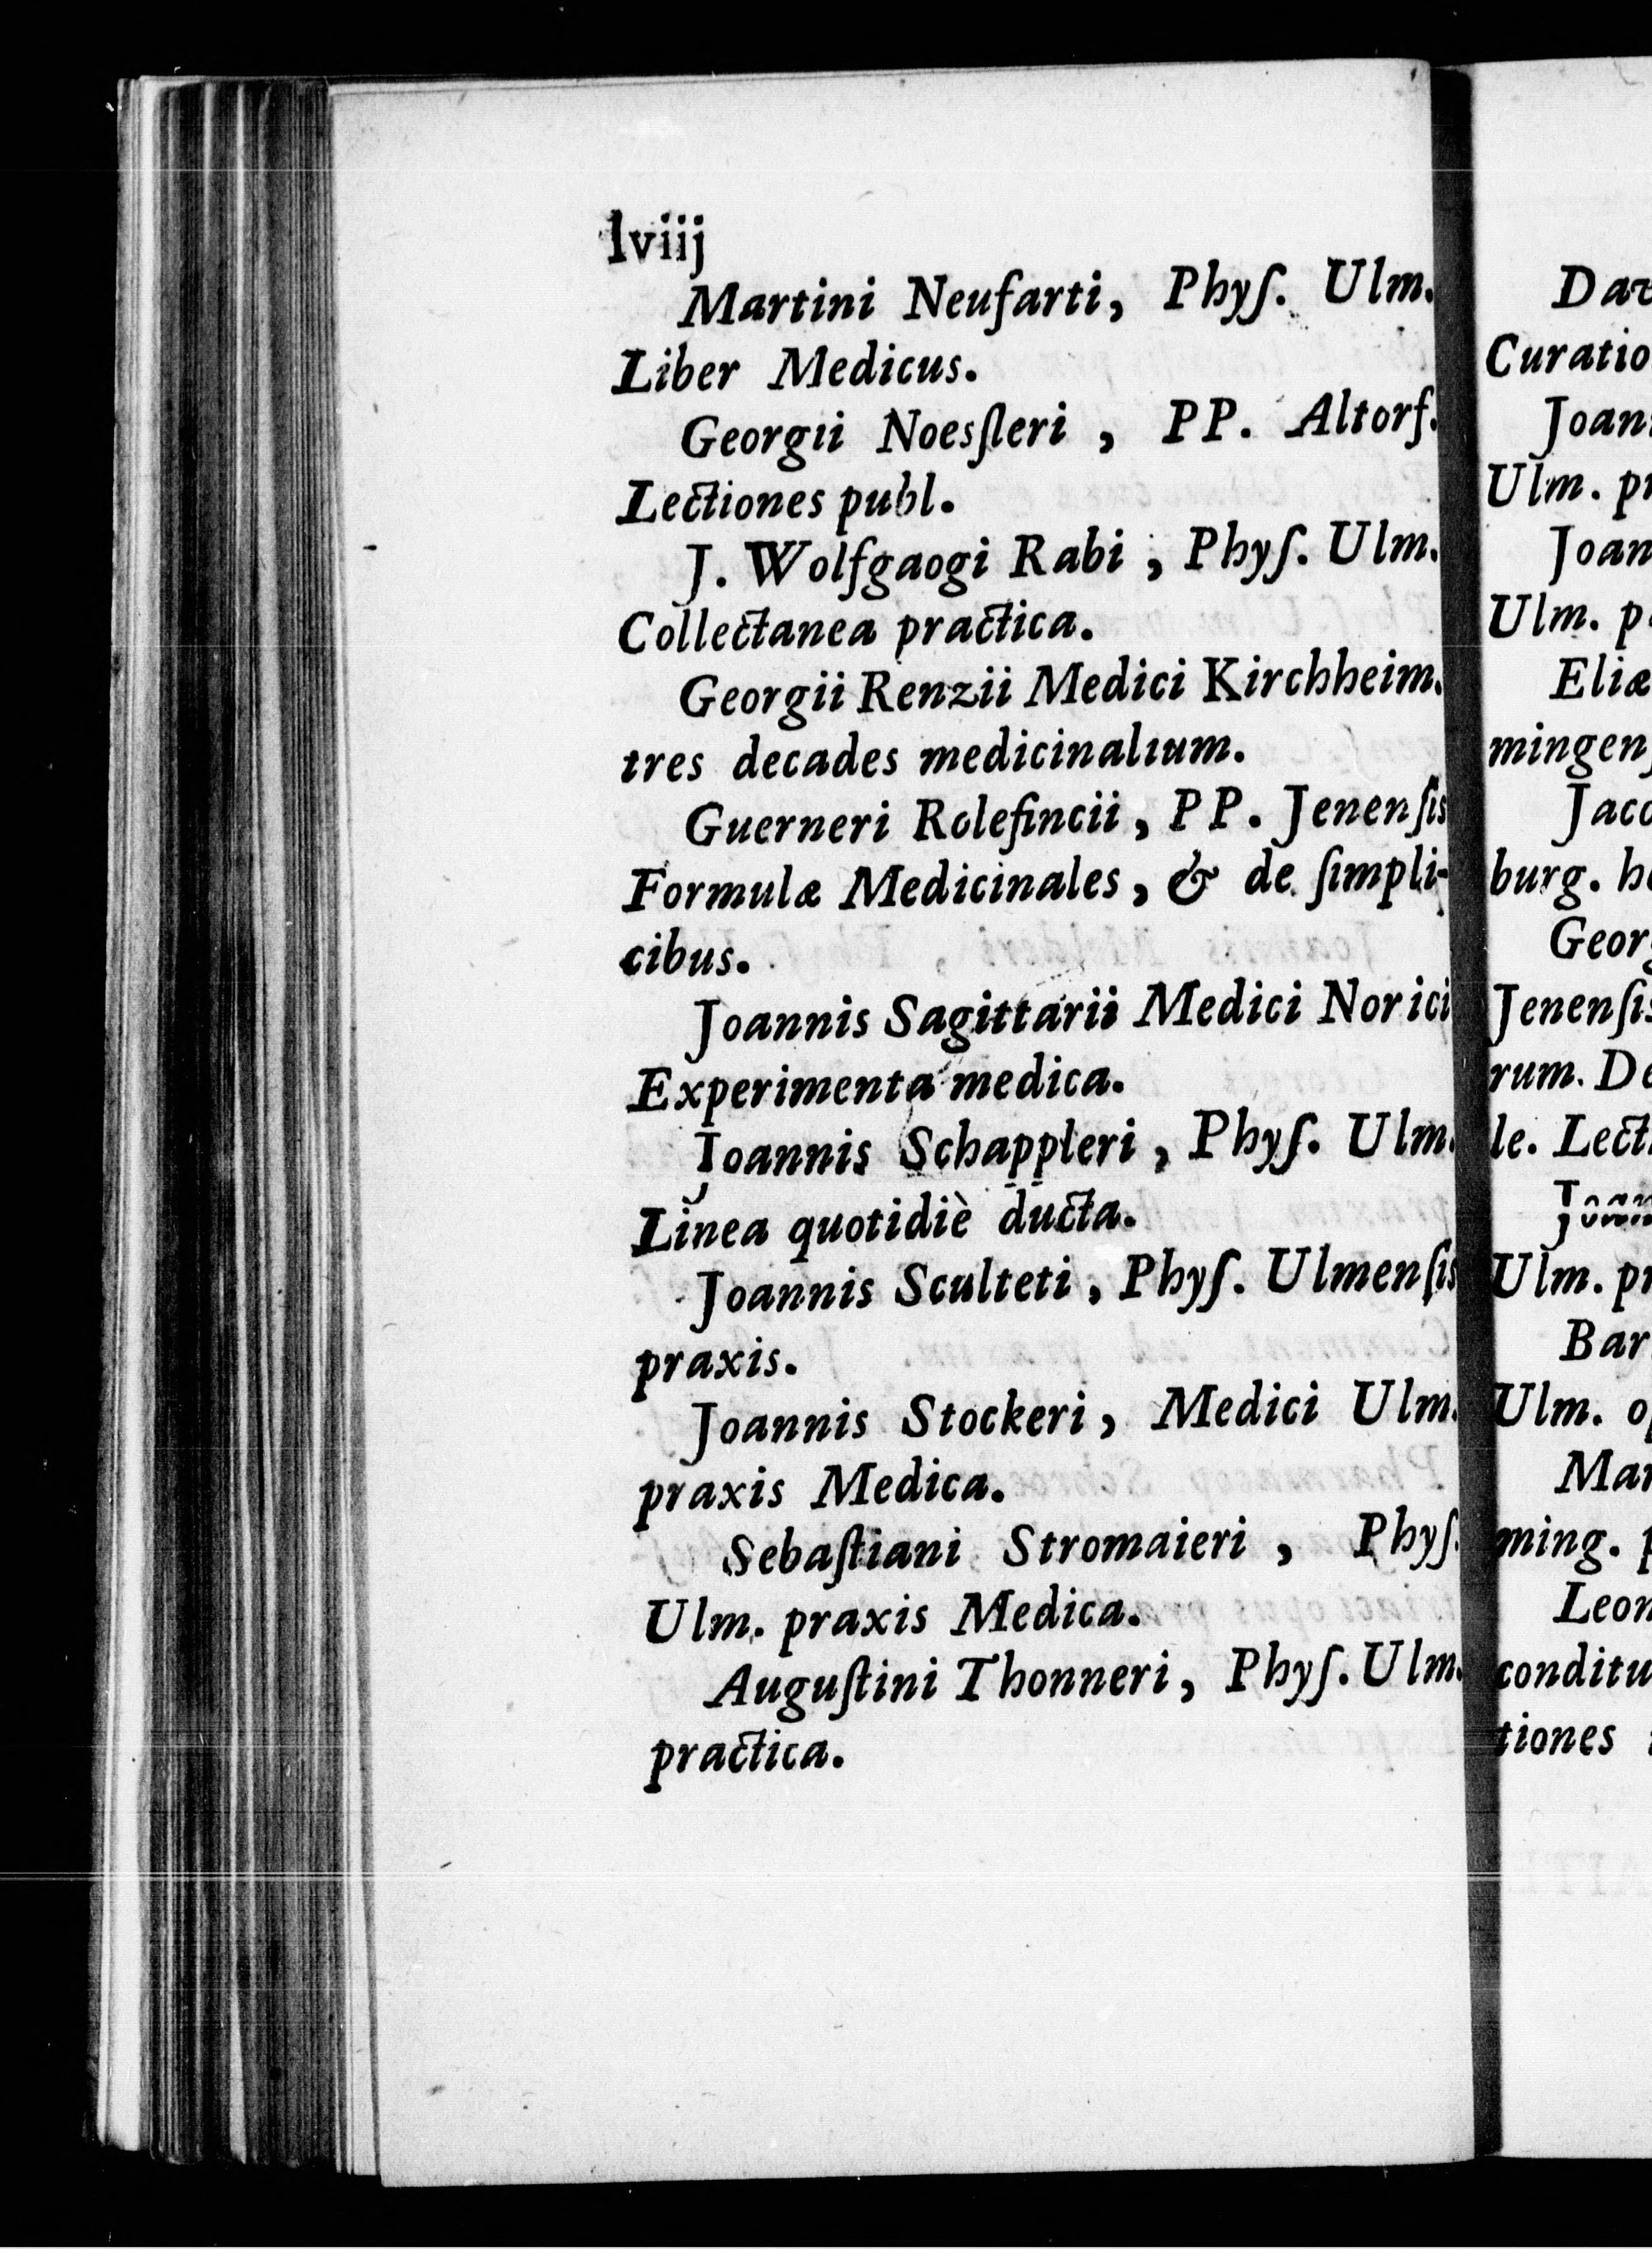 lviij
Martini Neufarti, Phyſ. Ulm.
Liber Medicus.
Georgii Noesſleri, PP. Altorf.
Lectiones publ.
J. Wolfgaogi Rabi, Phyſ. Ulm.
Collectanea practica.
Georgii Renzii Medici Kirchheim.
tres decades medicinalium.
Guerneri Rolefincii, PP. Jenenſis
Formulæ Medicinales, & de ſimpli-
cibus.
Joannis Sagittarii Medici Norici
Experimenta medica.
Joannis Schappleri, Phyſ. Ulm.
Linea quotidiè ducta.
Joannis Sculteti, Phyſ. Ulmenſis
praxis.
Joannis Stockeri, Medici Ulm.
praxis Medica.
Sebaſtiani Stromaieri, Phyſ.
Ulm. praxis Medica.
Auguſtini Thonneri, Phyſ. Ulm.
practica.
Ulm.
Ulm.
Jenenſis
rum. De
le.
Ulm.
Ulm.
ming.
tiones